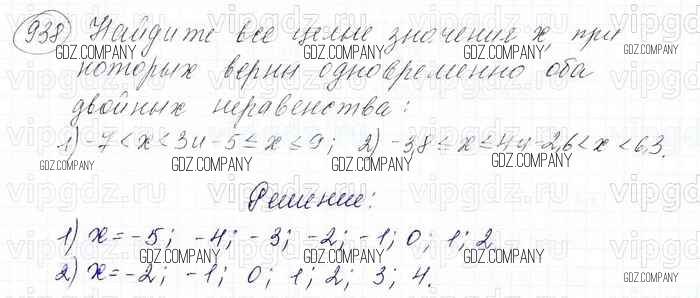 938) Найдите все целые значения x, при
которых верны одновременно оба
двойных неравенства:
1) -7 < x < 3 и -5 ≤ x ≤ 9; 2) -3,8 ≤ x ≤ 4 и -2,6 < x < 6,3.
Решение:
1) x = -5; -4; -3; -2; -1; 0; 1; 2
2) x = -2; -1; 0; 1; 2; 3; 4.